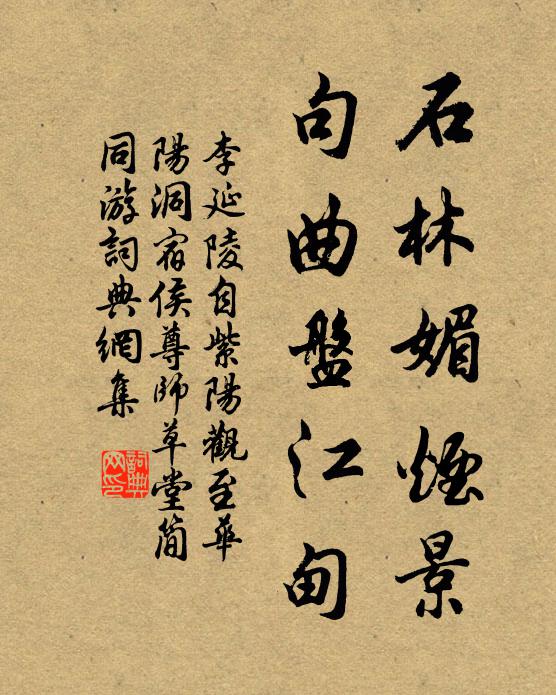 石林媚煙景
句曲盤江甸
李延陵自紫陽觀至華
陽洞宿侯尊師草堂簡
同游詞典網集
詞典
网印